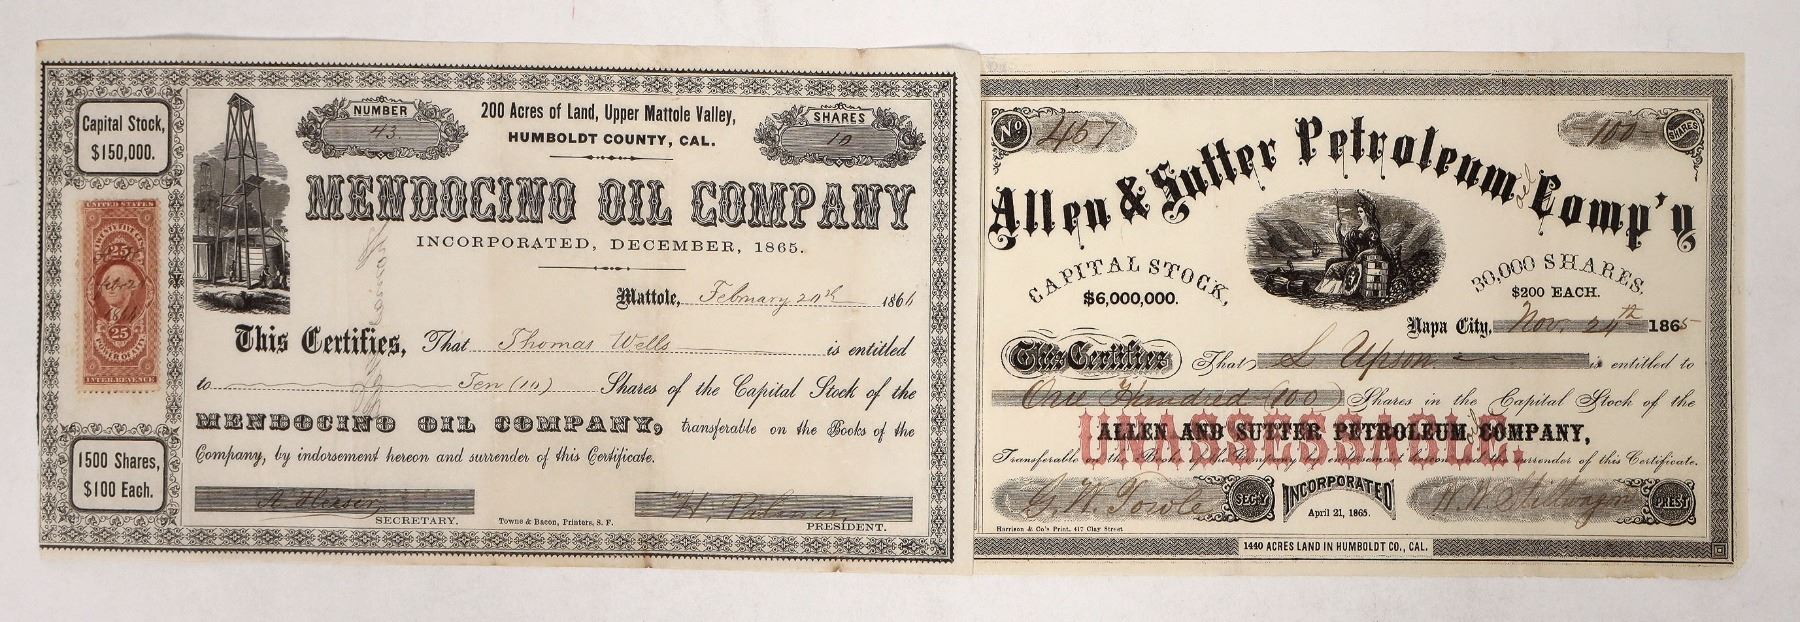 Capital Stock,
$150,000.
UNITED STATES
TWENTY FIVE CTS
25
25
POWER OF ATT'Y
INTER. REVENUE
1500 Shares,
$100 Each.
NUMBER
43
200 Acres of Land, Upper Mattole Valley,
HUMBOLDT COUNTY, CAL.
SHARES
10
MENDOCINO OIL COMPANY
INCORPORATED, DECEMBER, 1865.
Mattole, February 20th 1866
This Certifies, That Thomas Wells is entitled
to Ten (10) Shares of the Capital Stock of the
MENDOCINO OIL COMPANY, transferable on the Books of the
Company, by indorsement hereon and surrender of this Certificate.
SECRETARY.
Towne & Bacon, Printers, S. F.
PRESIDENT.
No 467
100 SHARES
Allen & Sutter Petroleum Comp'y
CAPITAL STOCK,
$6,000,000.
30,000 SHARES,
$200 EACH.
Napa City, Nov. 24th 1865
This Certifies That L Upson is entitled to
One Hundred (100) Shares in the Capital Stock of the
ALLEN AND SUTTER PETROLEUM COMPANY,
UNASSESSABLE.
Transferable on the Books of the Company by endorsement hereon and the surrender of this Certificate.
G. W. Towle SEC'Y
INCORPORATED
April 21, 1865.
W. W. Stillwagon PRES'T
Harrison & Co's Print, 417 Clay Street
1440 ACRES LAND IN HUMBOLDT CO., CAL.